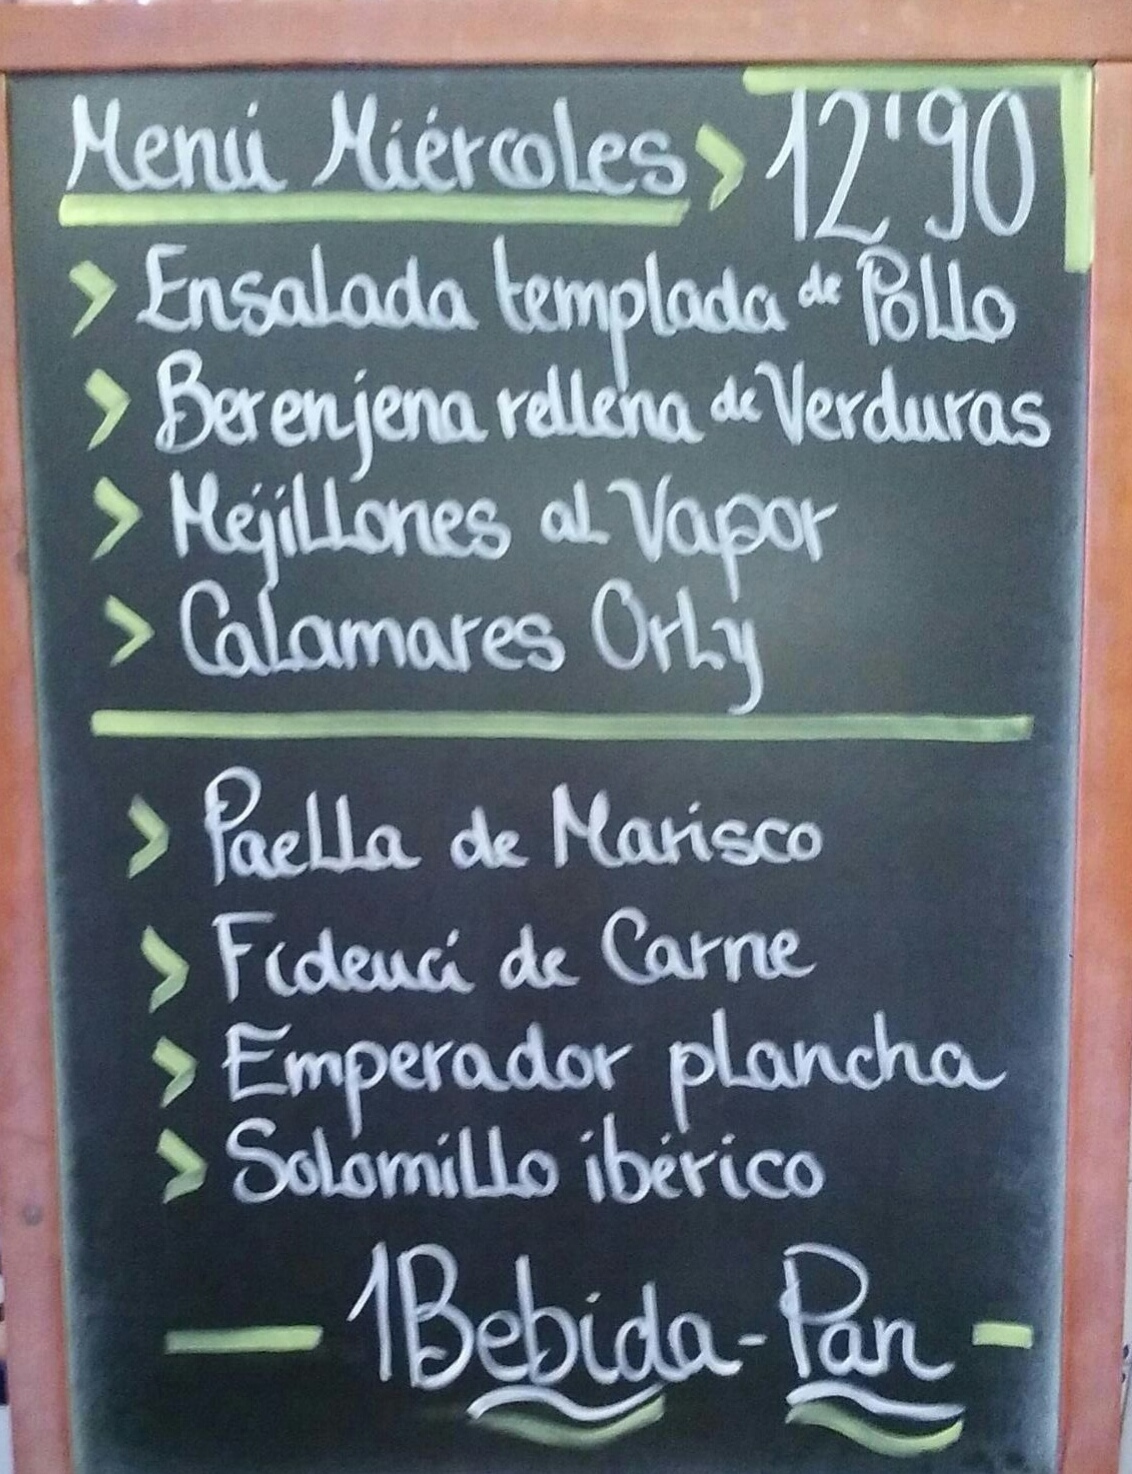 Menú Miércoles > 12'90
> Ensalada templada de Pollo
> Berenjena rellena de Verduras
> Mejillones al Vapor
> Calamares Orly
> Paella de Marisco
> Fideuá de Carne
> Emperador plancha
> Solomillo ibérico
1 Bebida - Pan